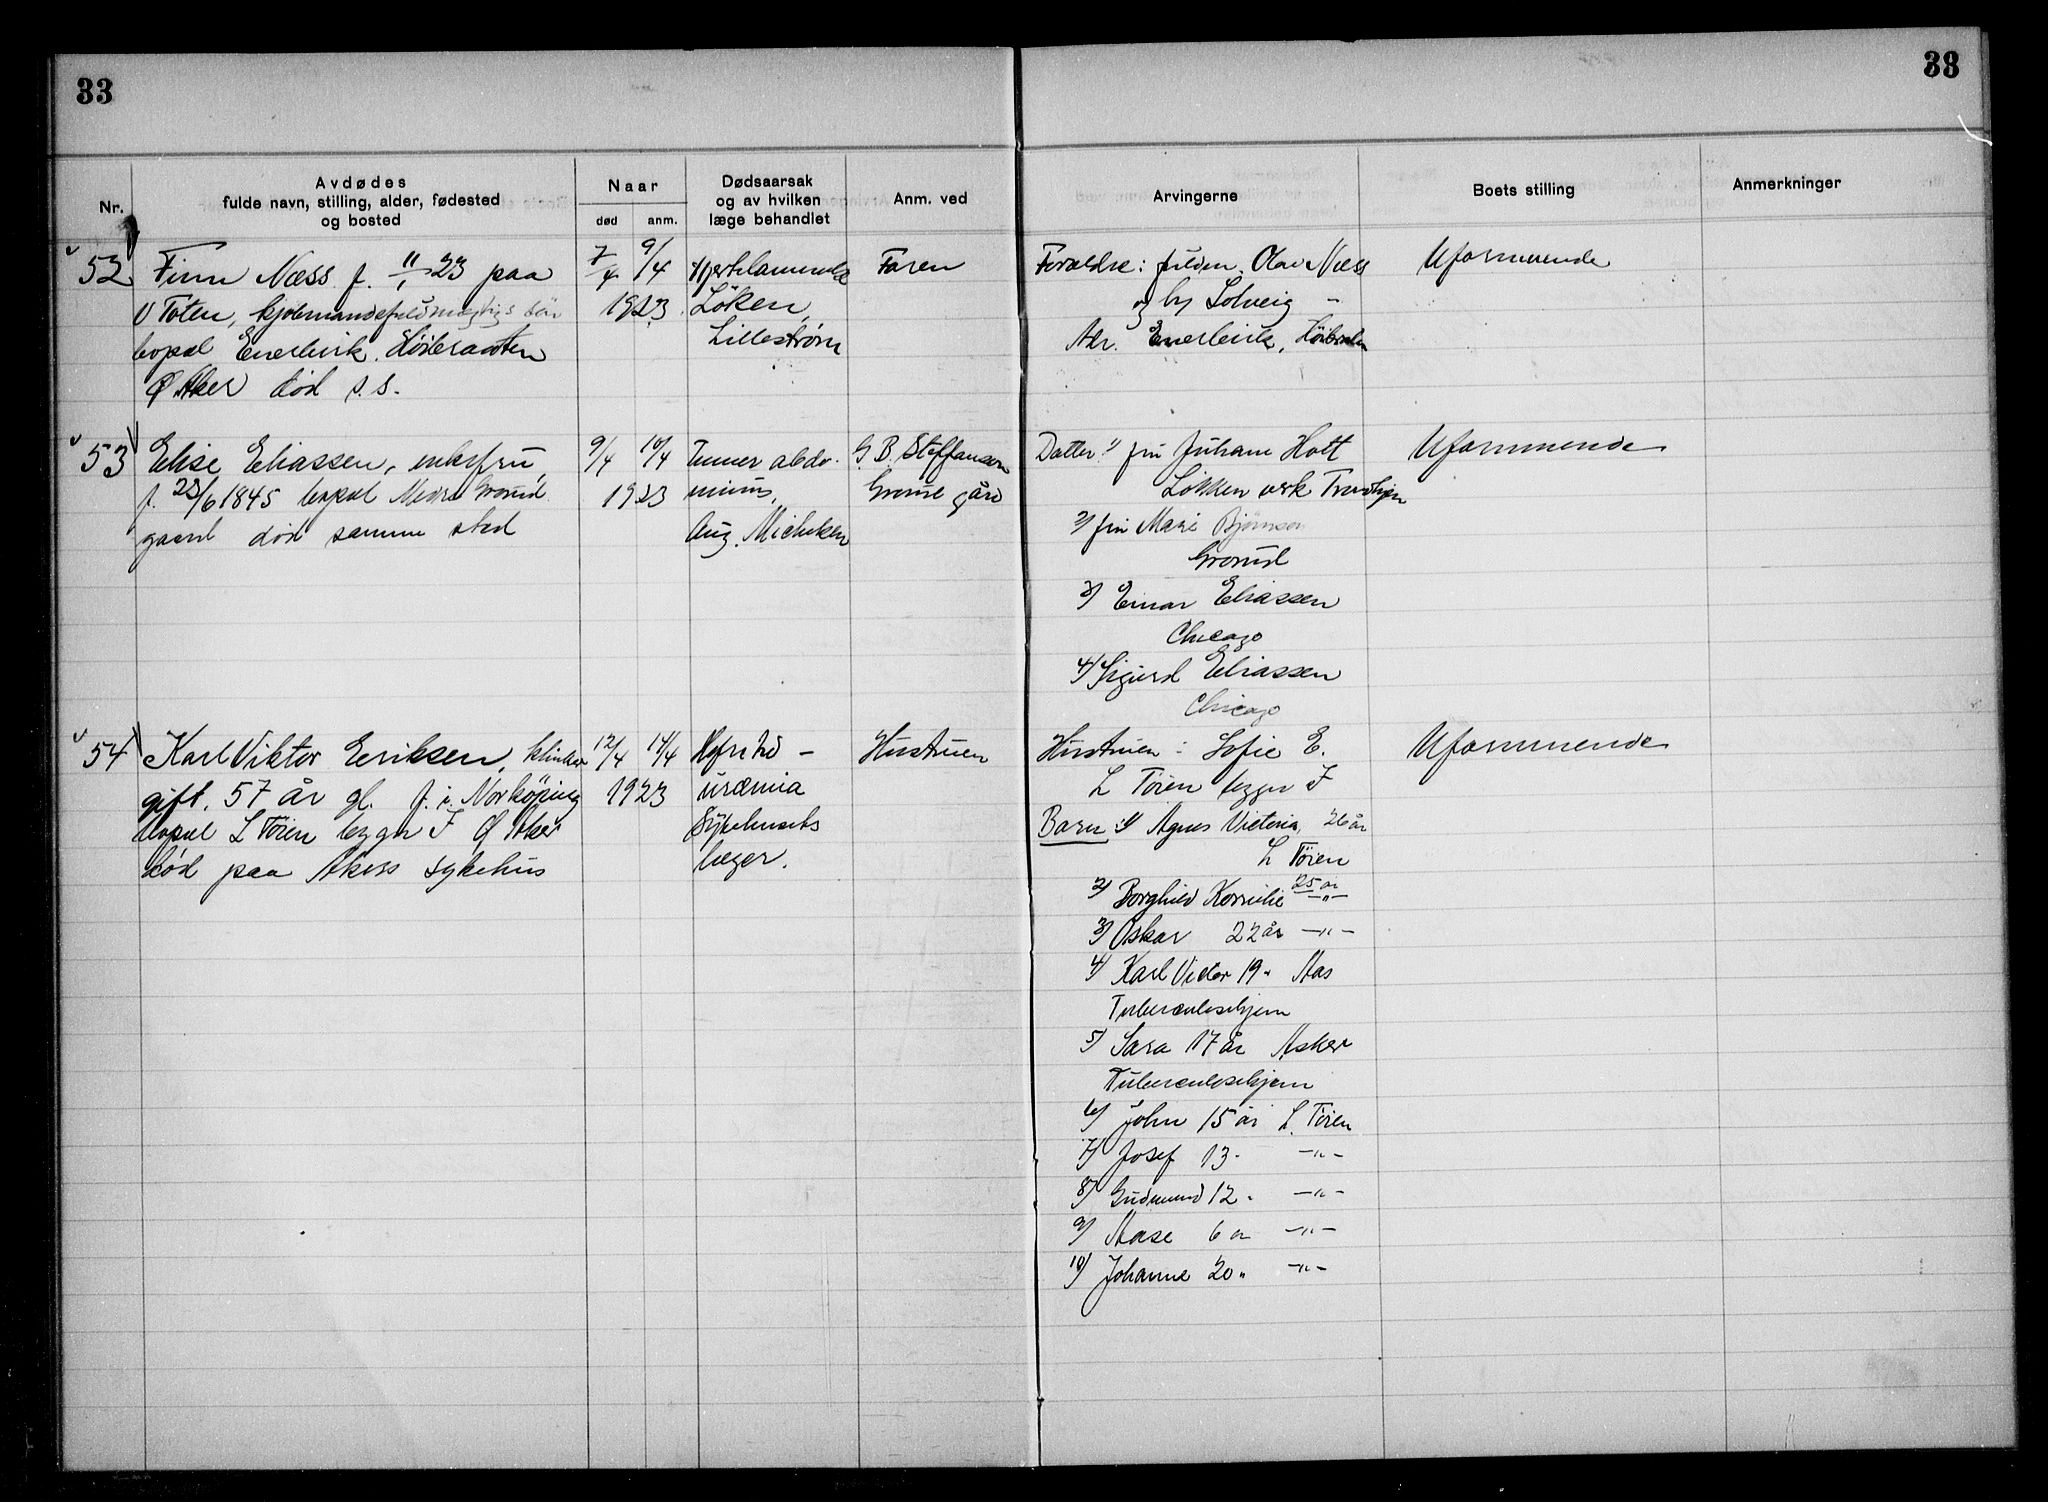 33
33
Nr.
Avdødes
fulde navn, stilling, alder, fødested
og bosted
Naar
død
anm.
Dødsaarsak
og av hvilken
læge behandlet
Anm. ved
Arvingerne
Boets stilling
Anmerkninger
52 Finn Næss f. 11/1 23 paa
V Toten,
bopæl Enerhvik, Høibraaten
Ø Aker død s.s.
7/4 9/4
1923
Hjertelammelse
Løken,
Lillestrøm
Faren
Forældre: fuldm. Olav Næss
og Solveig "
Adr. Enerhvik, Høibraaten
Uformuende
53 Elise Eliassen, enkefru
f. 23/6 1845 bopæl Nedre Grorud
gaard død samme sted
9/4 10/4
1923
Tumor abdo-
minis,
Aug. Michelsen
G. B. Steffensen
Grorud gård
Datter: 1) fru Juhane Holt
Løkken verk Trondhjem
2) fru Marie Bjørnsen
Grorud
3) Einar Eliassen
Chicago
4) Sigurd Eliassen
Chicago
Uformuende
54 Karl Viktor Eriksen,
gift. 57 år gl. f. i. Norköping
bopæl L Tøien bygn I Ø Aker
død paa Akers sykehus
12/4 14/4
1923
Nefritid –
uræmia
Sykehusets
læger.
Hustruen
Hustruen : Sofie E.
L Tøien bygn I
Barn: 1) Agnes Victoria, 26 år
L Tøien
2) Borghild Kornelie 25 år –"–
3) Oskar 22 år –"–
4) Karl Victor 19 " Aas
Tuberculosehjem
5) Sara 17 år Asker
Tuberculosehjem
6) John 15 år L. Tøien
7) Josef 13 " –"–
8) Gudmund 12 " –"–
9) Aase 6 " –"–
10) Johanne 20 " –"–
Uformuende